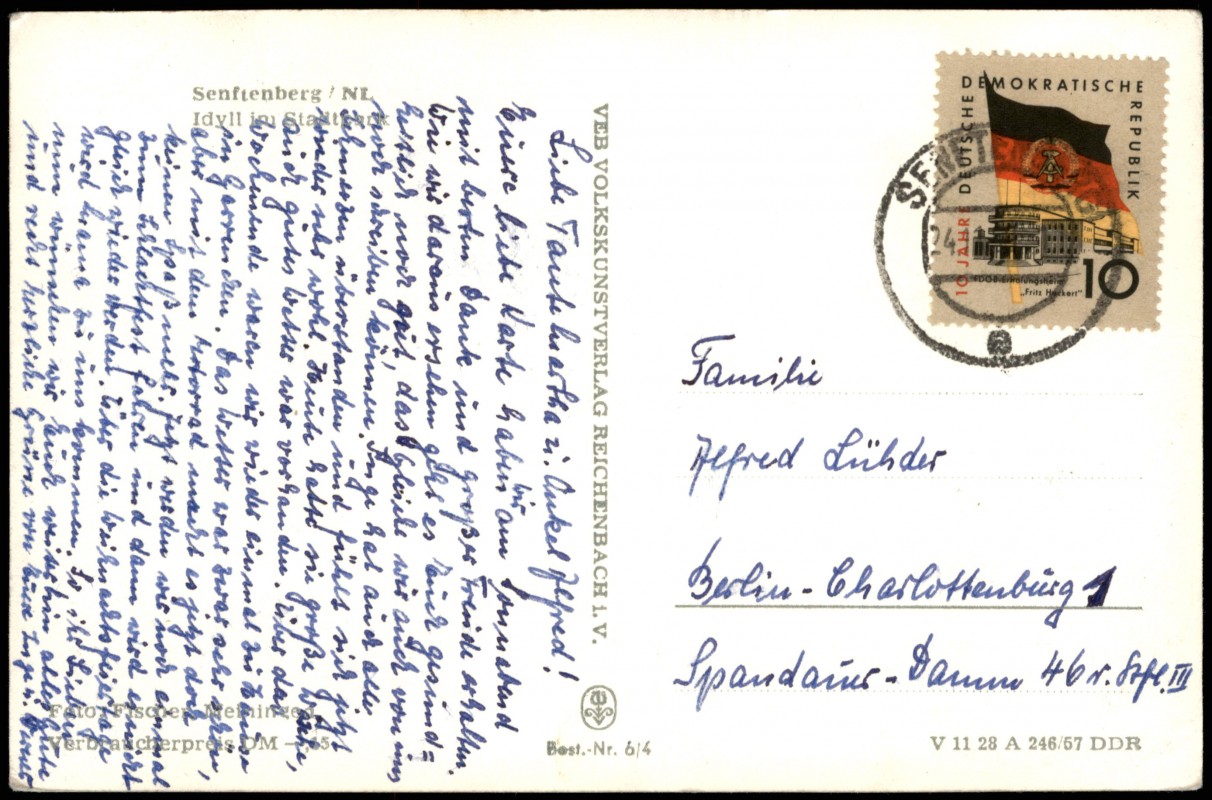 Senftenberg / NL
Idyll im Stadtpark
Liebe Tante Martha u. Onkel Alfred!
Eure liebe Karte haben wir am Sonnabend
mit bestem Dank und großer Freude erhalten.
Wie wir daraus ersehen geht es Euch gesund-
heitlich noch gut, das gleiche wir auch von uns
noch schreiben können. Inge hat auch alle
Schmerzen überstanden und fühlt sich jetzt
wieder sehr wohl. Heute hatte sie große Wäsche,
auch gutes Wetter war vorhanden. Über das
Wochenende waren wir wieder einmal zu Hause
in
Das Wetter war zwar sehr
aber mit dem Motorrad macht es jetzt doch
keinen Spaß mehr. Jetzt werden wir noch einmal
zum Schlachtfest fahren und dann wird es nicht
gleich wieder werden. Über die Weihnachtsfeiertage
wird
zu uns kommen. So Ihr Lieben
nun wünschen wir Euch weiterhin alles Gute
und recht herzliche Grüße von Eure Inge u. Werner
Foto: Fischer, Meiningen
Verbraucherpreis DM –,15
VEB VOLKSKUNSTVERLAG REICHENBACH i. V.
Best.-Nr. 6/4
DEUTSCHE DEMOKRATISCHE REPUBLIK
10 JAHRE
FDGB-Erholungsheim
„Fritz Heckert"
10
SENFTENBERG
24
a
Familie
Alfred Lühder
Berlin-Charlottenburg 1
Spandauer-Damm 46 r. Stfl. III
V 11 28 A 246/57 DDR